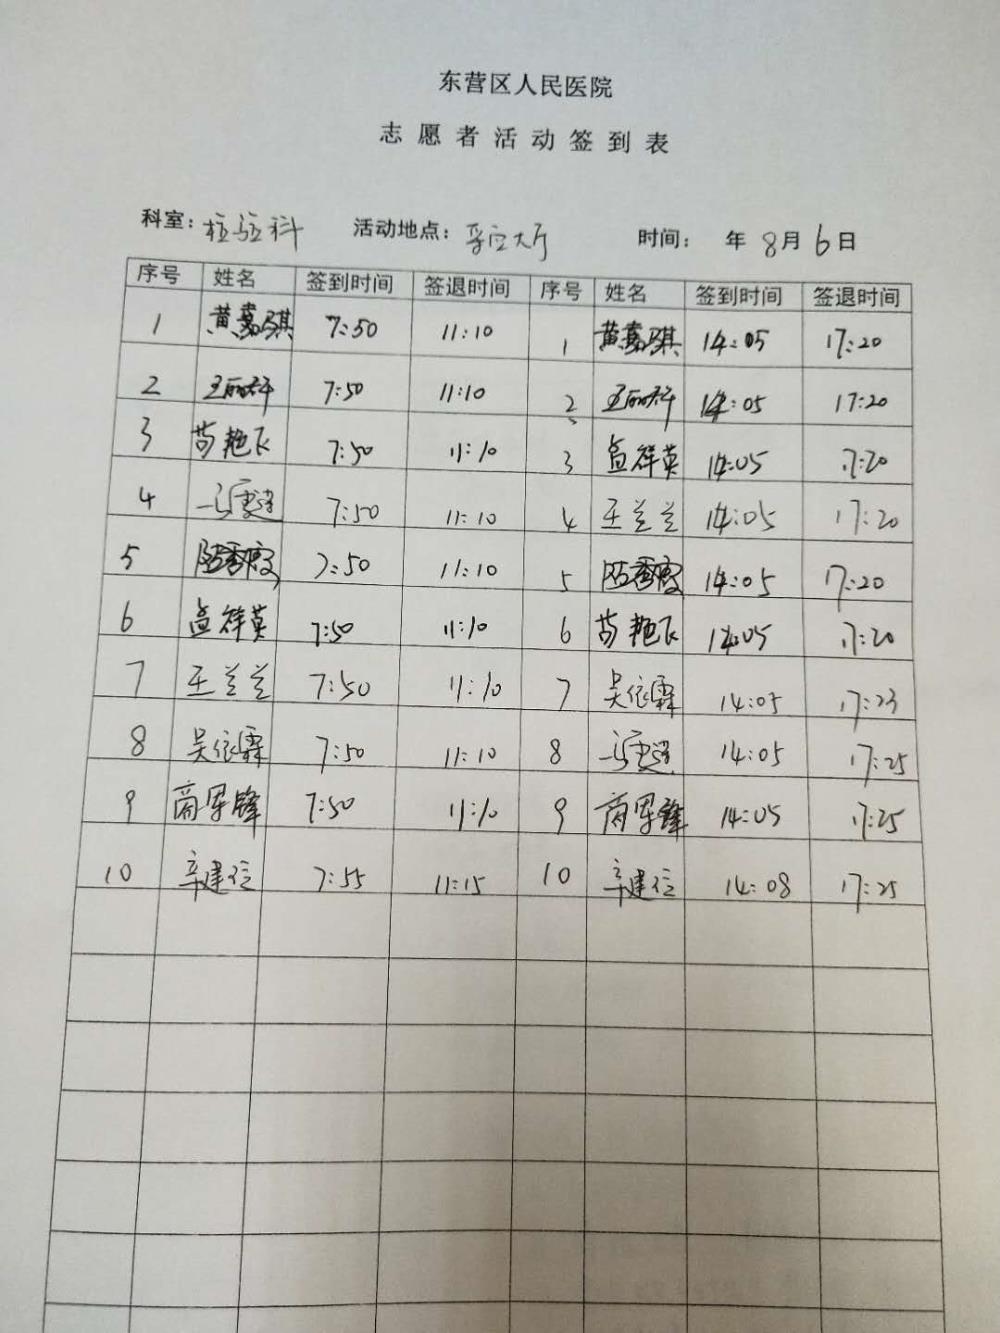 东营区人民医院
志愿者活动签到表
科室：检验科 活动地点：导医大厅 时间： 年 8月6日
序号 姓名 签到时间 签退时间 序号 姓名 签到时间 签退时间
1 黄嘉琪 7:50 11:10 1 黄嘉琪 14:05 17:20
2 王丽 7:50 11:10 2 王丽 14:05 17:20
3 苟艳飞 7:50 11:10 3 孟祥英 14:05 17:20
4 7:50 11:10 4 王兰兰 14:05 17:20
5 陈秀霞 7:50 11:10 5 陈秀霞 14:05 17:20
6 孟祥英 7:50 11:10 6 苟艳飞 14:05 17:20
7 王兰兰 7:50 11:10 7 吴依霖 14:05 17:23
8 吴依霖 7:50 11:10 8 14:05 17:25
9 商军锋 7:50 11:10 9 商军锋 14:05 17:25
10 辛建 7:55 11:15 10 辛建 14:08 17:25